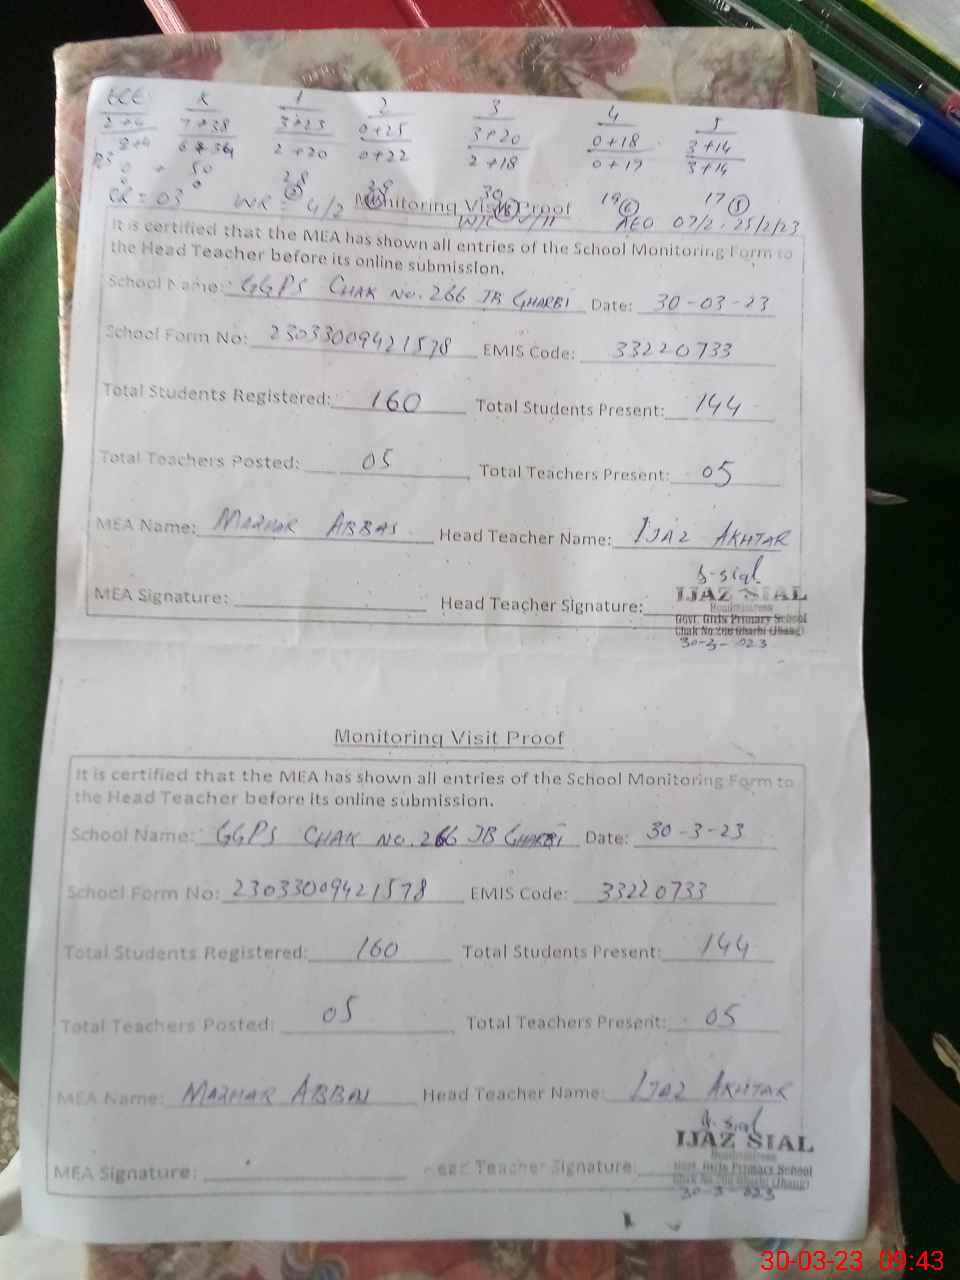 ECE K 1 2 3 4 5
2+4 7+38 3+23 0+25 3+20 0+18 3+14
2+4 6+34 2+20 0+22 2+18 0+17 3+14
50 28 30 19 6 17 5
CR = 03 WR = 4/2 Monitoring Visit Proof AEO 07/2, 25/2/23
It is certified that the MEA has shown all entries of the School Monitoring Form to
the Head Teacher before its online submission.
School Name: GGPS CHAK NO. 266 JB GHARBI Date: 30-03-23
School Form No: 23033009421578 EMIS Code: 33220733
Total Students Registered: 160 Total Students Present: 144
Total Teachers Posted: 05 Total Teachers Present: 05
MEA Name: MAZHAR ABBAS Head Teacher Name: IJAZ AKHTAR
MEA Signature: Head Teacher Signature:
IJAZ SIAL
Headmistress
Govt. Girls Primary School
Chak No.266 Gharbi (Jhang)
30-3-023
Monitoring Visit Proof
It is certified that the MEA has shown all entries of the School Monitoring Form to
the Head Teacher before its online submission.
School Name: GGPS CHAK NO. 266 JB GHARBI Date: 30-3-23
School Form No: 23033009421578 EMIS Code: 33220733
Total Students Registered: 160 Total Students Present: 144
Total Teachers Posted: 05 Total Teachers Present: 05
MEA Name: MAZHAR ABBAS Head Teacher Name: IJAZ AKHTAR
MEA Signature: Head Teacher Signature:
IJAZ SIAL
Headmistress
Govt. Girls Primary School
Chak No.266 Gharbi (Jhang)
30-3-023
30-03-23 09:43